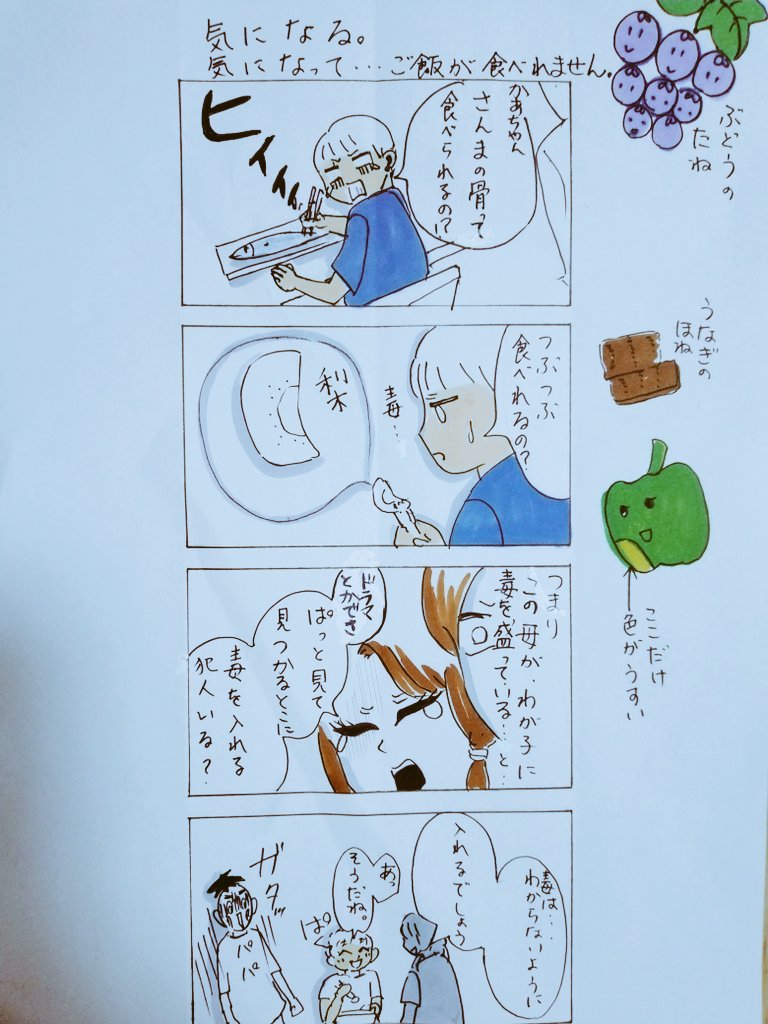 気になる。
気になって…ご飯が食べれません。
かあちゃん
さんまの骨って
食べられるの!?
ヒィィィィ
つぶつぶ
食べれるの?
毒…
梨
つまり
この母が、わが子に
毒を盛っている…と…
ドラマ
とかでさ
ぱっと見て
見つかるとこに
毒を入れる
犯人いる?
毒は…、
わからないように
入れるでしょう
あっ
そうだね。
ぱぁ
ガタッ
パパ
ぶどうの
たね
うなぎの
ほね
ここだけ
色がうすい